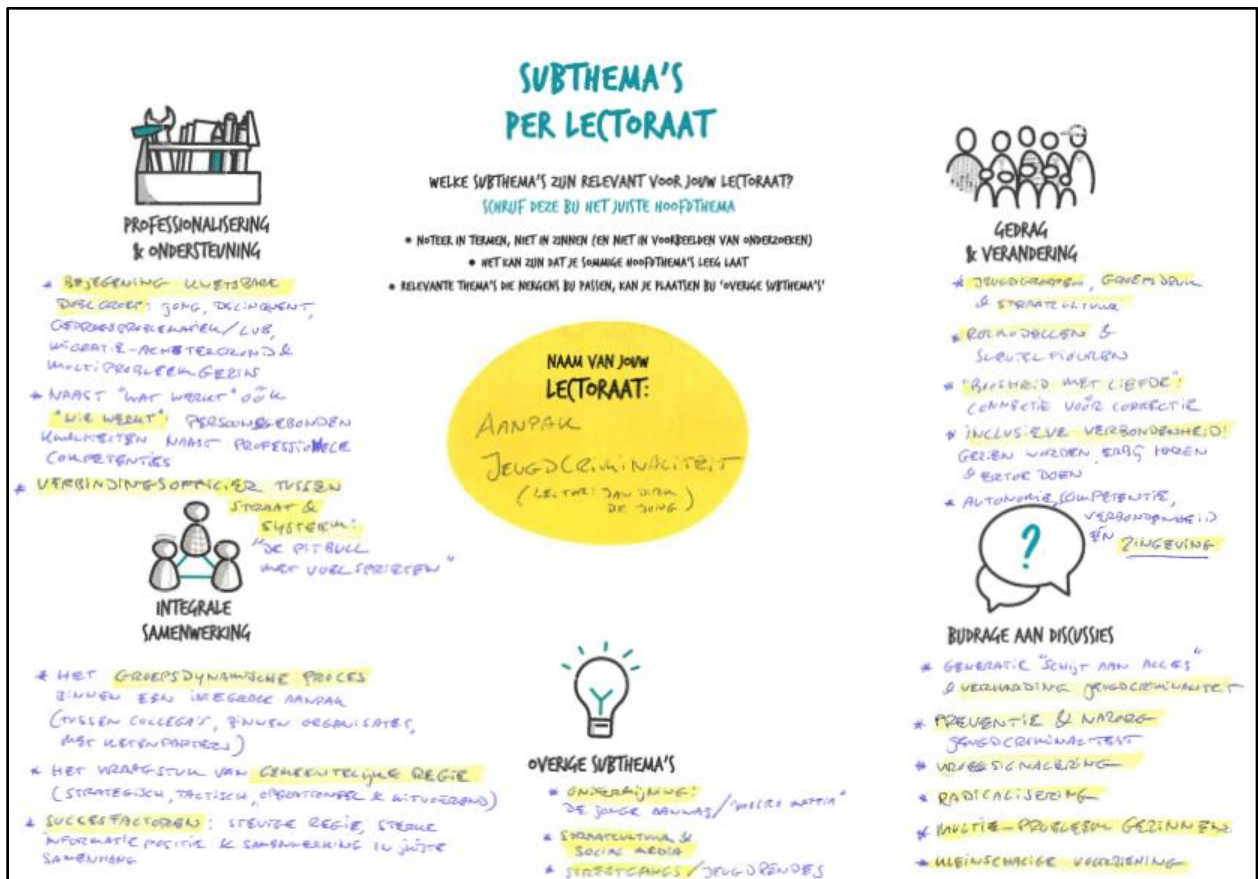 SUBTHEMA'S
PER LECTORAAT
WELKE SUBTHEMA'S ZIJN RELEVANT VOOR JOUW LECTORAAT?
SCHRIJF DEZE BIJ HET JUISTE HOOFDTHEMA
* NOTEER IN TERMEN, NIET IN ZINNEN (EN NIET IN VOORBEELDEN VAN ONDERZOEKEN)
* HET KAN ZIJN DAT JE SOMMIGE HOOFDTHEMA'S LEEG LAAT
* RELEVANTE THEMA'S DIE NERGENS BIJ PASSEN, KAN JE PLAATSEN BIJ 'OVERIGE SUBTHEMA'S'
NAAM VAN JOUW
LECTORAAT:
AANPAK
JEUGDCRIMINALITEIT
(LECTOR: JAN DIRK
DE JONG)
PROFESSIONALISERING
& ONDERSTEUNING
* BEJEGENING KWETSBARE
DOELGROEP: JONG, DELINQUENT,
GEDRAGSPROBLEMATIEK/LVB,
MIGRATIE-ACHTERGROND &
MULTIPROBLEEM GEZINS
* NAAST "WAT WERKT" OÓK
"WIE WERKT": PERSOONSGEBONDEN
KWALITEITEN NAAST PROFESSIONELE
COMPETENTIES
* VERBINDINGSOFFICIER TUSSEN
STRAAT &
SYSTEEM:
"DE PITBULL
MET VOELSPRIETEN"
INTEGRALE
SAMENWERKING
* HET GROEPSDYNAMISCHE PROCES
BINNEN EEN INTEGRALE AANPAK
(TUSSEN COLLEGA'S, BINNEN ORGANISATIES,
MET KETENPARTERS)
* HET VRAAGSTUK VAN GEMEENTELIJKE REGIE
(STRATEGISCH, TACTISCH, OPERATIONEEL & UITVOEREND)
* SUCCESFACTOREN: STEVIGE REGIE, STERKE
INFORMATIE POSITIE & SAMENWERKING IN JUISTE
SAMENHANG
OVERIGE SUBTHEMA'S
* ONDERMIJNING:
DE JONGE AANWAS/"MOCRO MAFFIA"
* STRAATCULTUUR &
SOCIAL MEDIA
* STREETGANGS/JEUGDBENDES
GEDRAG
& VERANDERING
* JEUGDGROEPEN, GROEPSDRUK
& STRAATCULTUUR
* ROLMODELLEN &
SLEUTELFIGUREN
* "BOOSHEID MET LIEFDE":
CONNECTIE VOÓR CORRECTIE
* INCLUSIEVE VERBONDENHEID!
GEZIEN WORDEN, ERBIJ HOREN
& ERTOE DOEN
* AUTONOMIE, COMPETENTIE,
VERBONDENHEID
ÉN ZINGEVING
BIJDRAGE AAN DISCUSSIES
* GENERATIE "SCHIJT AAN ALLES"
& VERHARDING JEUGDCRIMINALITEIT
* PREVENTIE & NAZORG
JEUGDCRIMINALITEIT
* VROEGSIGNALERING
* RADICALISERING
* MULTI-PROBLEEM GEZINNEN
* KLEINSCHALIGE VOORZIENING